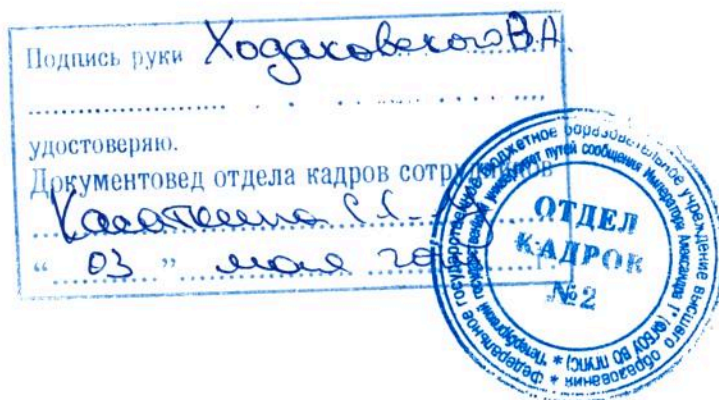 Подпись руки Ходаковского В.А.
удостоверяю.
Документовед отдела кадров сотрудников
“ 03 ” мая
Федеральное государственное бюджетное образовательное учреждение высшего образования *
"Петербургский государственный университет путей сообщения Императора Александра I" (ФГБОУ ВО ПГУПС) *
ОТДЕЛ
КАДРОВ
№2